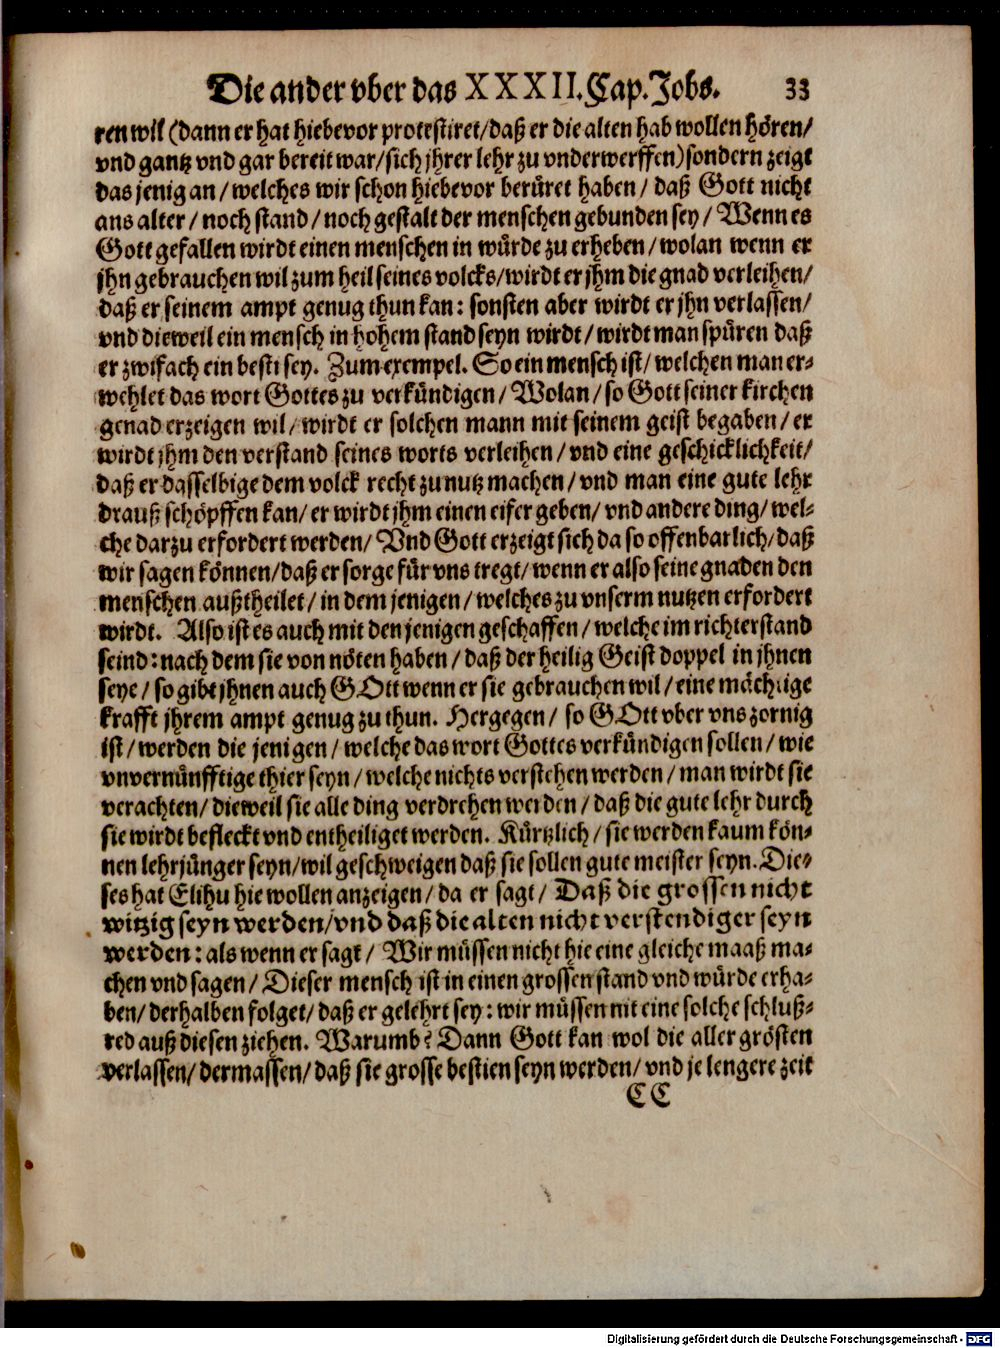 Die ander vber das XXXII. Cap. Jobs. 33
ren wil (dann er hat hiebevor protestiret/ daß er die alten hab wollen hören/
vnd gantz vnd gar bereit war/ sich jhrer lehr zu vnderwerffen) sondern zeigt
das jenig an/ welches wir schon hiebevor berüret haben/ daß Gott nicht
ans alter/ noch stand/ noch gestalt der menschen gebunden sey/ Wenn es
Gott gefallen wirdt einen menschen in würde zu erheben/ wolan wenn er
jhn gebrauchen wil zum heil seines volcks/ wirdt er jhm die gnad verleihen/
daß er seinem ampt genug thun kan: sonsten aber wirdt er jhn verlassen/
vnd dieweil ein mensch in hohem stand seyn wirdt/ wirdt man spüren daß
er zwifach ein besti sey. Zum exempel. So ein mensch ist/ welchen man er-
wehlet das wort Gottes zu verkündigen/ Wolan/ so Gott seiner kirchen
genad erzeigen wil/ wirdt er solchen mann mit seinem geist begaben/ er
wirdt jhm den verstand seines worts verleihen/ vnd eine geschicklichkeit/
daß er dasselbige dem volck recht zu nutz machen/ vnd man eine gute lehr
drauß schöpffen kan/ er wirdt jhm einen eifer geben/ vnd andere ding/ wel-
che darzu erfordert werden/ Vnd Gott erzeigt sich da so offenbarlich/ daß
wir sagen können/ daß er sorge für vns tregt/ wenn er also seine gnaden den
menschen außtheilet/ in dem jenigen/ welches zu vnserm nutzen erfordert
wirdt. Also ist es auch mit den jenigen geschaffen/ welche im richterstand
seind: nach dem sie von nöten haben/ daß der heilig Geist doppel in jhnen
seye/ so gibt jhnen auch GOtt wenn er sie gebrauchen wil/ eine mächtige
krafft jhrem ampt genug zu thun. Hergegen/ so GOtt vber vns zornig
ist/ werden die jenigen/ welche das wort Gottes verkündigen sollen/ wie
vnvernünfftige thier seyn/ welche nichts verstehen werden/ man wirdt sie
verachten/ dieweil sie alle ding verdrehen werden/ daß die gute lehr durch
sie wirdt befleckt vnd entheiliget werden. Kürtzlich/ sie werden kaum kön-
nen lehrjünger seyn/ wil geschweigen daß sie sollen gute meister seyn. Die-
ses hat Elihu hie wollen anzeigen/ da er sagt/ Daß die grossen nicht
witzig seyn werden/ vnd daß die alten nicht verstendiger seyn
werden: als wenn er sagt/ Wir müssen nicht hie eine gleiche maaß ma-
chen vnd sagen/ Dieser mensch ist in einen grossen stand vnd würde erha-
ben/ derhalben folget/ daß er gelehrt sey: wir müssen nit eine solche schluß-
red auß diesen ziehen. Warumb? Dann Gott kan wol die aller grösten
verlassen/ dermassen/ daß sie grosse bestien seyn werden/ vnd je lengere zeit
CC
Digitalisierung gefördert durch die Deutsche Forschungsgemeinschaft - DFG